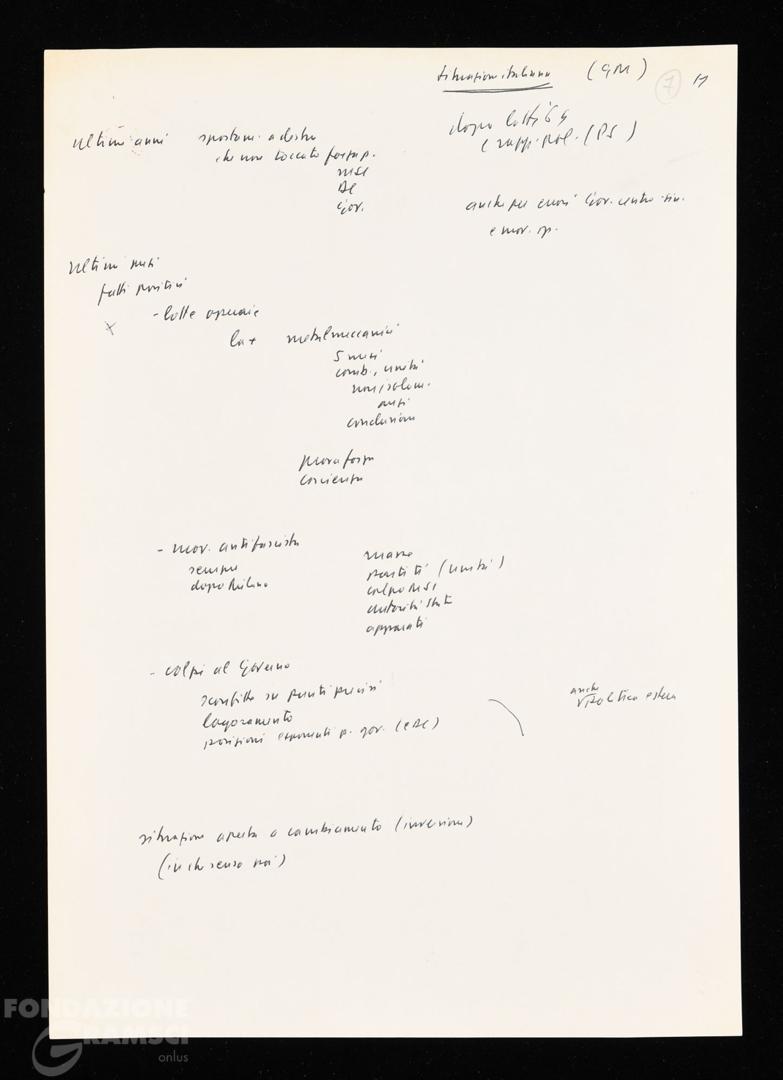 situazione italiana (GM) 7
ultimi anni spostam. a destra
che non toccato forza p.
MSI
DC
Gov.
dopo lotte 69
e rapp. pol. (PS)
anche per errori Gov. centro-sin.
e mov. op.
ultimi mesi
fatti positivi
- lotte operaie
x
la + metalmeccanici
5 mesi
comb., unità
non isolam.
conclusione
prova forza
coscienza
- mov. antifascista
sempre
dopo Milano
massa
partiti (unità)
colpo MSI
autorità Stato
apparati
- colpi al Governo
sconfitte su punti precisi
logoramento
posizioni esponenti p. gov. (e DC)
anche
Politica estera
situazione aperta a cambiamento (inversione)
(in che senso poi)
FONDAZIONE
GRAMSCI
onlus